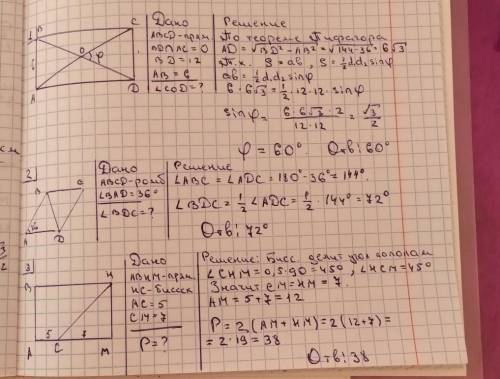 1 B C
6 O φ
A D
Дано
ABCD-прям.
BD∩AC=O
BD=12
AB=6
∠COD=?
Решение
По теореме Пифагора
AD=√BD²-AB²=√144-36=6√3
Т.к. S=ab, S=½d₁d₂sinφ
ab=½d₁d₂sinφ
6·6√3=½·12·12·sinφ
sinφ=6·6√3·2/12·12=√3/2
φ=60° Отв:60°
2
B C
36
A D
Дано
ABCD-ромб
∠BAD=36°
∠BDC=?
Решение
∠ABC=∠ADC=180°-36°=144°.
∠BDC=½∠ADC=½·144°=72°
Отв:72°
3
B H
5 7
A C M
Дано
ABHM-прям.
HC-биссек
AC=5
CM=7
P=?
Решение: Бисс. делит угол пополам
∠CHM=0,5·90=45°, ∠HCM=45°
Значит CM=HM=7.
AM=5+7=12
P=2(AM+HM)=2(12+7)=
=2·19=38
Отв:38